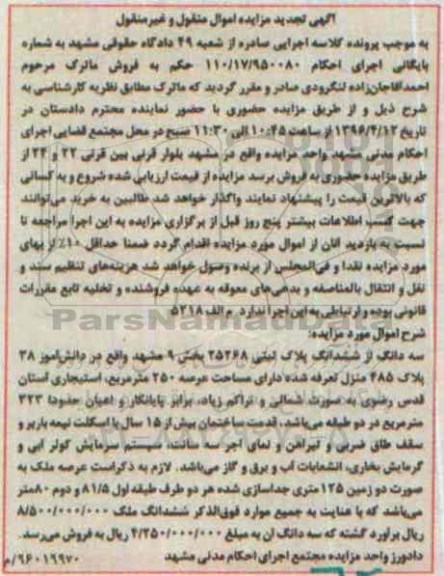 آگهی تجدید مزایده اموال منقول و غیرمنقول
به موجب پرونده کلاسه اجرایی صادره از شعبه ۴۹ دادگاه حقوقی مشهد به شماره
بایگانی اجرای احکام ۱۱۰/۱۷/۹۵۰۰۸۰ حکم به فروش ماترک مرحوم
احمدآقاجان‌زاده لنگرودی صادر و مقرر گردید که ماترک مطابق نظریه کارشناسی به
شرح ذیل و از طریق مزایده حضوری با حضور نماینده محترم دادستان در
تاریخ ۱۳۹۶/۴/۱۲ از ساعت ۱۰:۴۵ الی ۱۱:۳۰ صبح در محل مجتمع قضایی اجرای
احکام مدنی مشهد واحد مزایده واقع در مشهد بلوار قرنی بین قرنی ۲۲ و ۲۴ از
طریق مزایده حضوری به فروش برسد مزایده از قیمت ارزیابی شده شروع و به کسانی
که بالاترین قیمت را پیشنهاد نمایند واگذار خواهد شد طالبین به خرید می‌توانند
جهت کسب اطلاعات بیشتر پنج روز قبل از برگزاری مزایده به این اجرا مراجعه تا
نسبت به بازدید آنان از اموال مورد مزایده اقدام گردد ضمنا حداقل ۱۰٪ از بهای
مورد مزایده نقدا و فی‌المجلس از برنده وصول خواهد شد هزینه‌های تنظیم سند و
نقل و انتقال بالمناصفه و بدهی‌های معوقه به عهده فروشنده و تخلیه تابع مقررات
قانونی بوده و ارتباطی به این اجرا ندارد. م الف ۵۲۱۸
ParsNamadData
شرح اموال مورد مزایده:
سه دانگ از ششدانگ پلاک ثبتی ۲۵۲۶۸ بخش ۹ مشهد واقع در دانش‌آموز ۳۸
پلاک ۴۸۵ منزل تعرفه شده دارای مساحت عرصه ۲۵۰ مترمربع، استیجاری آستان
قدس رضوی به صورت شمالی و تراکم زیاد، برابر پایانکار و اعیان حدودا ۳۲۳
مترمربع در دو طبقه می‌باشد، قدمت ساختمان بیش از ۱۵ سال با اسکلت نیمه باربر و
سقف طاق ضربی و تیرآهن و نمای آجر سه سانت، سیستم سرمایش کولر آبی و
گرمایش بخاری، انشعابات آب و برق و گاز می‌باشد. لازم به ذکراست عرصه ملک به
صورت دو زمین ۱۲۵ متری جداسازی شده هر دو طرف طبقه اول ۸۱/۵ و دوم ۸۰متر
می‌باشد که با عنایت به جمیع موارد فوق‌الذکر ششدانگ ملک ۸/۵۰۰/۰۰۰/۰۰۰
ریال برآورد گشته که سه دانگ آن به مبلغ ۴/۲۵۰/۰۰۰/۰۰۰ ریال به فروش می‌رسد.
دادورز واحد مزایده مجتمع اجرای احکام مدنی مشهد
۹۶۰۱۹۹۷۰/م